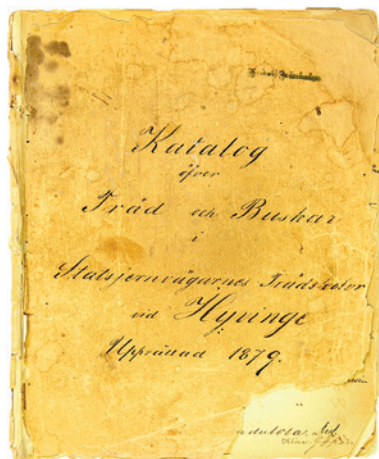 Katalog
öfver
Träd och Buskar
i
Statsjernvägarnes Trädskolor
vid Hyvinge
Upprättad 1879.